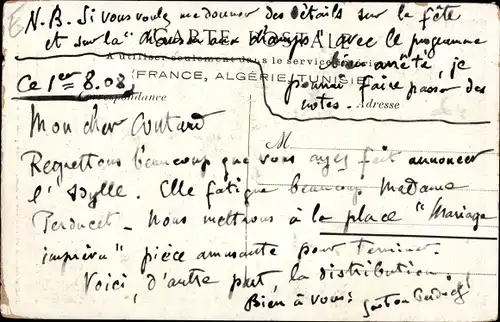 N.B. Si vous voulez me donner des détails sur la fête
et sur la "Chanson aux champs" avec le programme
CARTE POSTALE
bien arrêté, je
A utiliser seulement dans le service
(FRANCE, ALGÉRIE, TUNISIE)
pourrai faire passer des
notes.
Ce 1er 8.08
Correspondance
Adresse
Mon cher Coutard
M
Regrettons beaucoup que vous ayez fait annoncer
l'Idylle. Elle fatigue beaucoup Madame
Perducet. Nous mettrons à la place "Mariage
imprévu" pièce amusante pour terminer.
Voici, d'autre part, la distribution.
Bien à vous:
Gaston Perducet